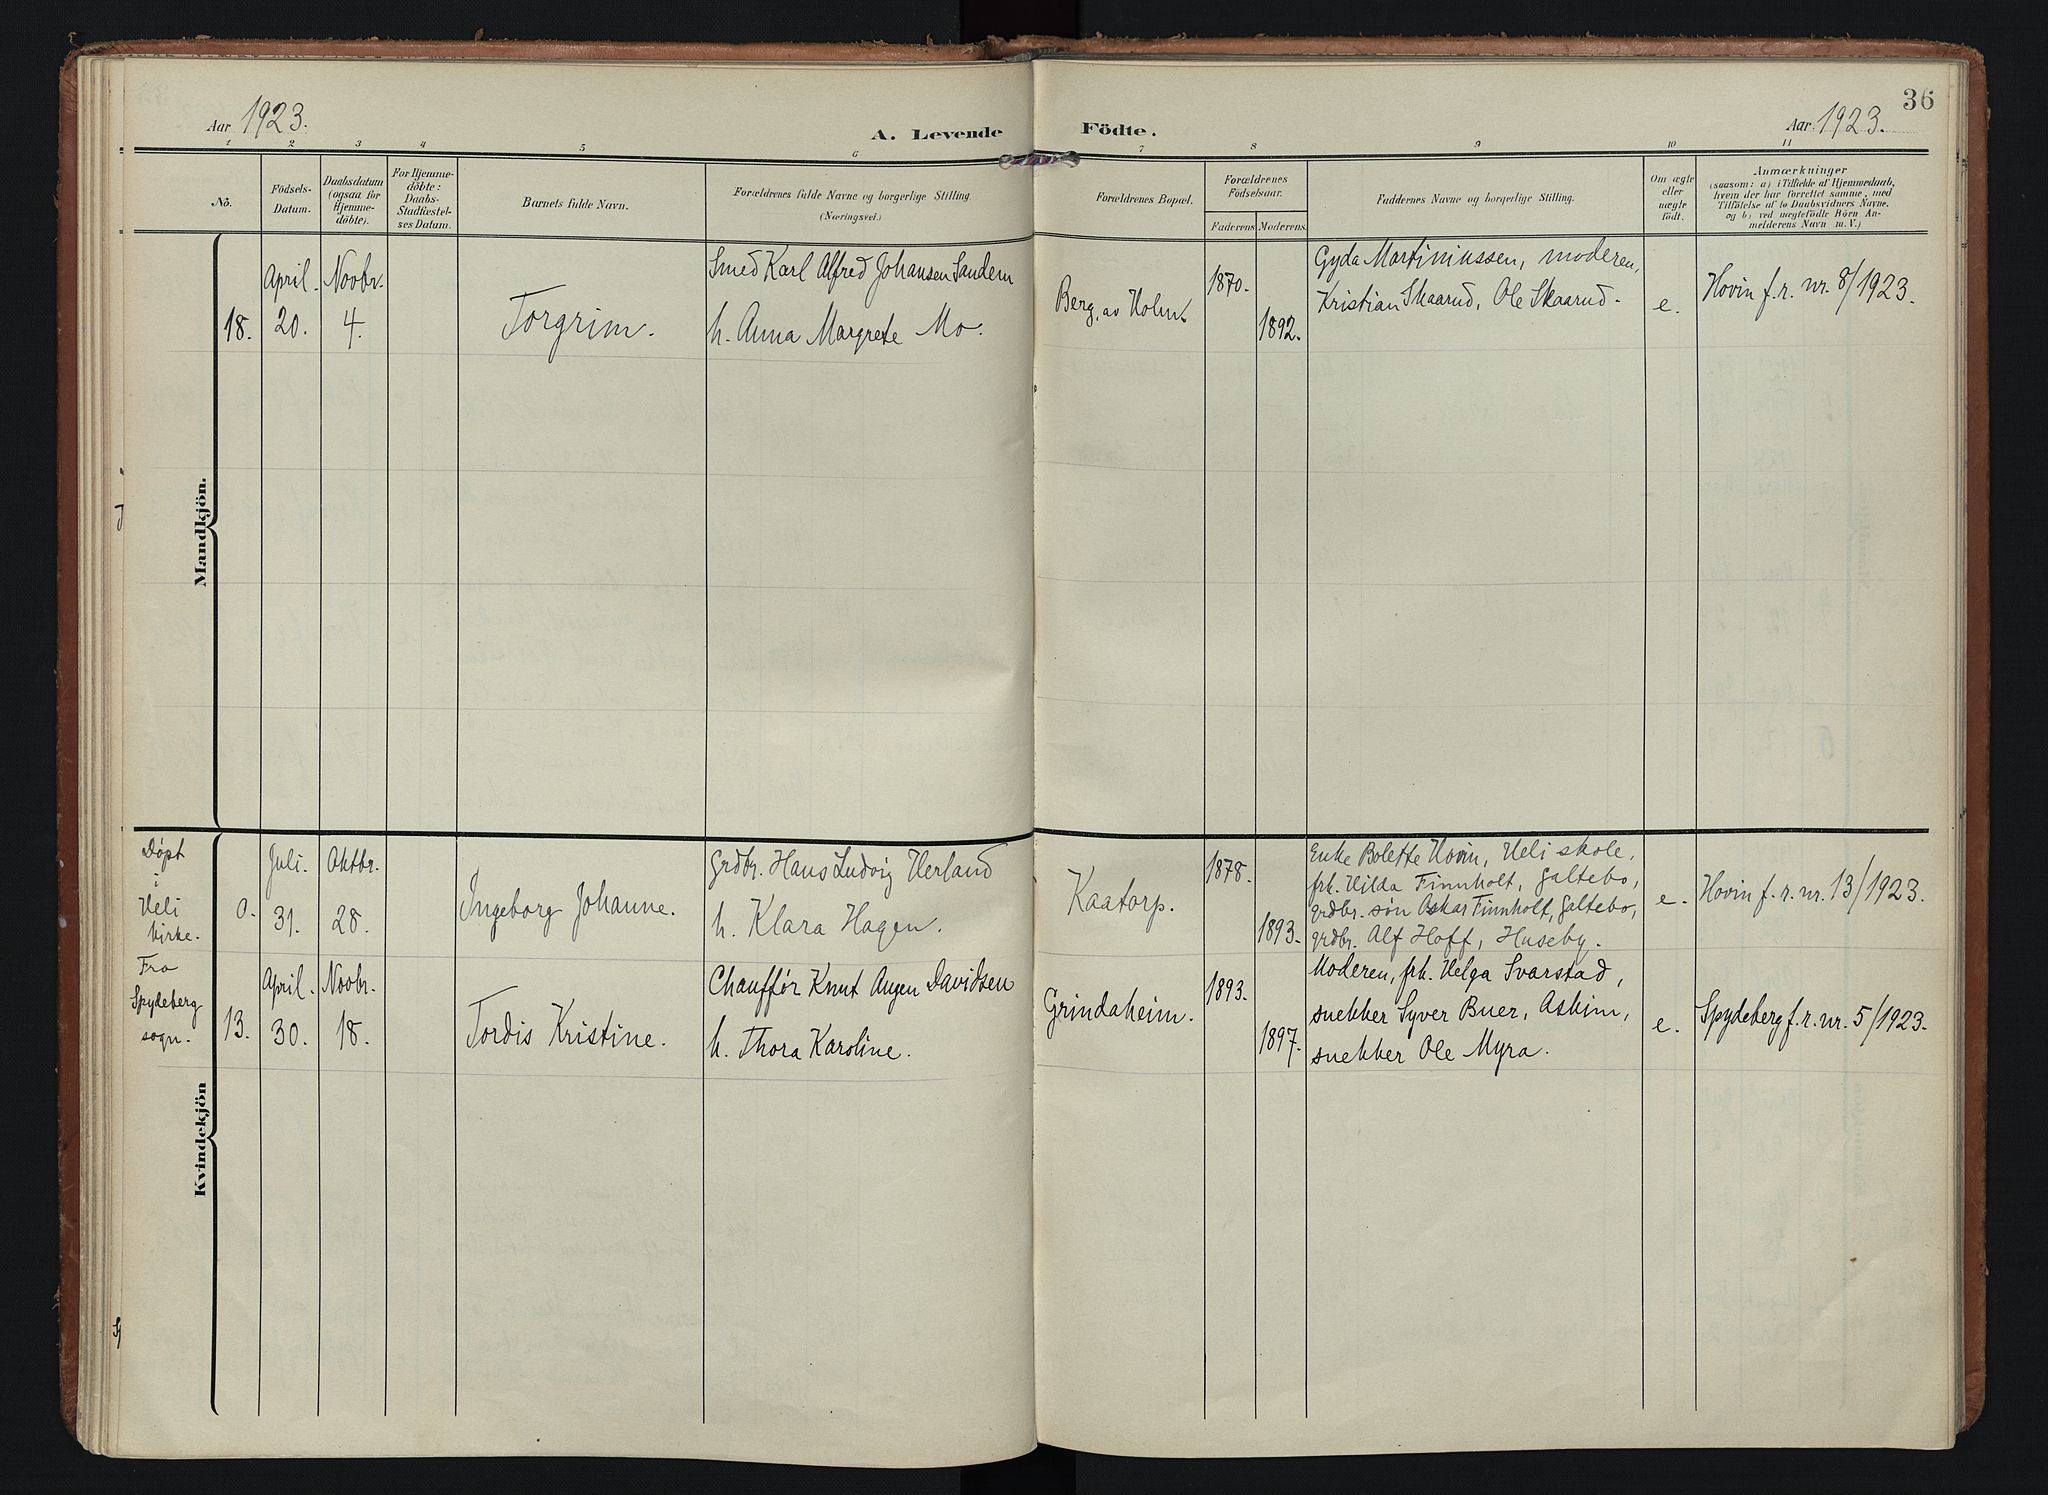 36
Aar 1923.
A. Levende Födte.
Aar 1923.
1 2 3 4 5 6 7 8 9 10 11
Nô.
Födsels-
Datum.
Daabsdatum
(ogsaa for
Hjemme-
döbte).
For Hjemme-
döbte:
Daabs-
Stadfæstel-
ses Datum.
Barnets fulde Navn.
Forældrenes fulde Navne og borgerlige Stilling
(Næringsvei.)
Forældrenes Bopæl.
Forældrenes
Födselsaar.
Faderens Moderens
Faddernes Navne og borgerlige Stilling.
Om ægte
eller
uægte
födt.
Anmærkninger
(saasom: a) i Tilfælde af Hjemmedaab,
hvem der har forrettet samme, med
Tilföielse af to Daabsvidners Navne.
og b) ved uægtefödte Börn An-
melderens Navn m. V.)
Mandkjön.
18.
April.
20.
Novbr.
4.
Torgrim.
Smed Karl Alfred Johansen Sandem
h. Anna Margrete Mo.
Berg, av Holm.
1870.
1892.
Gyda Martiniussen, moderen,
Kristian Skaarud, Ole Skaarud.
e.
Hovin f. r. nr. 8/1923.
Kvindekjön
Døpt
i
Heli
kirke.
0.
Juli.
31.
Oktbr.
28.
Ingeborg Johanne.
Grdbr. Hans Ludvig Herland
h. Klara Hagen.
Kaatorp.
1878.
1893.
Enke Bolette Hovin, Heli skole,
frk. Hilda Finnholt, Galtebo,
grdbr. søn Oskar Finnholt, Galtebo,
grdbr. Alf Hoff, Huseby.
e.
Hovin f. r. nr. 13/1923.
Fra
Spydeberg
sogn.
13.
April.
30.
Novbr.
18.
Tordis Kristine.
Chauffør Knut Angen Davidsen
h. Thora Karoline.
Grindaheim.
1893.
1897.
Moderen, frk. Helga Svarstad,
snekker Syver Buer, Askim,
snekker Ole Myra.
e.
Spydeberg f. r. nr. 5/1923.